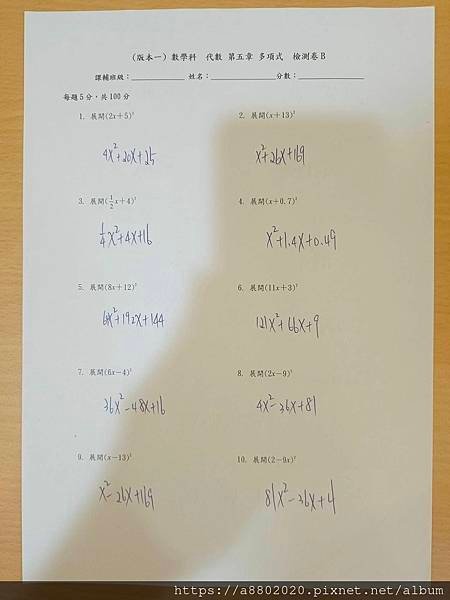 （版本一）數學科 代數 第五章 多項式 檢測卷 B
課輔班級：____________ 姓名：____________ 分數：____________
每題 5 分，共 100 分
1. 展開(2x+5)²
2. 展開(x+13)²
4x²+20x+25
x²+26x+169
3. 展開(1/2x+4)²
4. 展開(x+0.7)²
1/4x²+4x+16
x²+1.4x+0.49
5. 展開(8x+12)²
6. 展開(11x+3)²
64x²+192x+144
121x²+66x+9
7. 展開(6x-4)²
8. 展開(2x-9)²
36x²-48x+16
4x²-36x+81
9. 展開(x-13)²
10. 展開(2-9x)²
x²-26x+169
81x²-36x+4
https://a8802020.pixnet.net/album